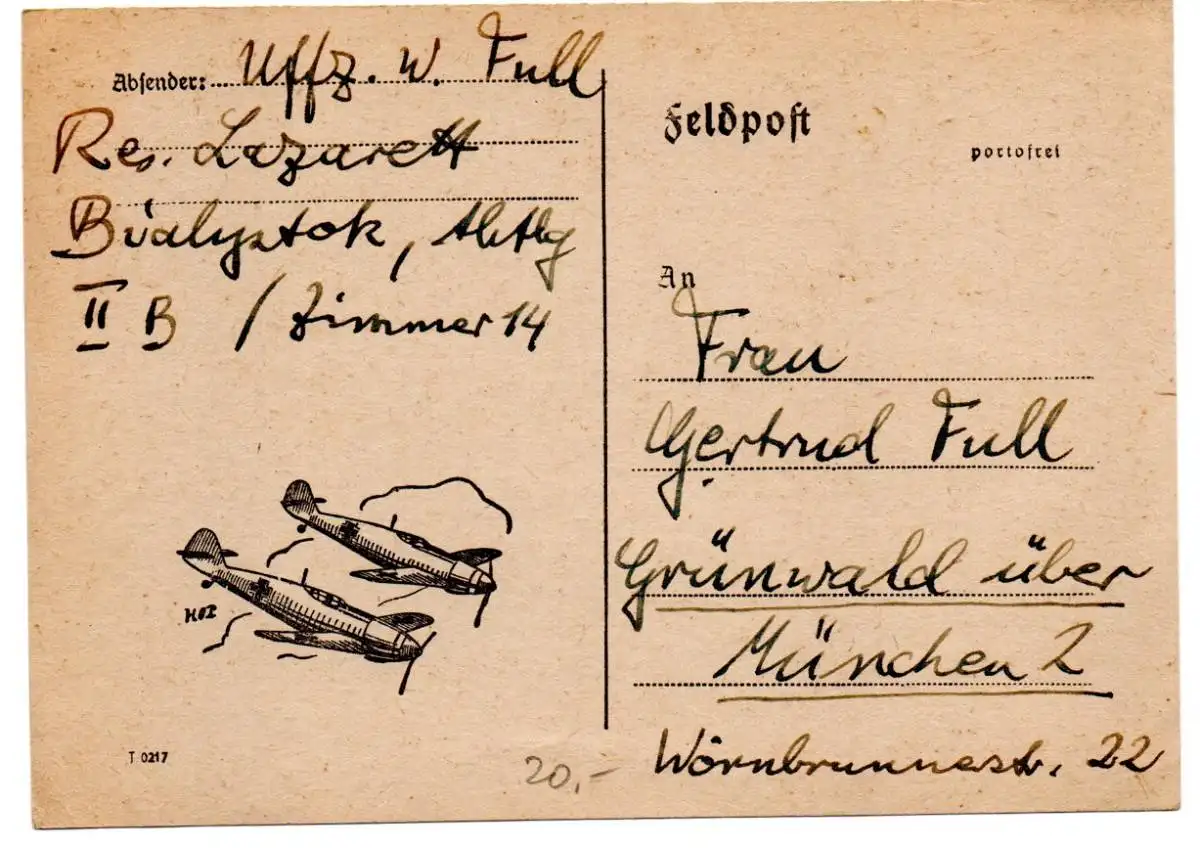 Absender: Uffz. W. Full
Res. Lazarett
Bialystok, Abtlg
II B / Zimmer 14
T 0217
Feldpost
portofrei
An
Frau
Gertrud Full
Grünwald über
München 2
Wörnbrunnerstr. 22
20,-